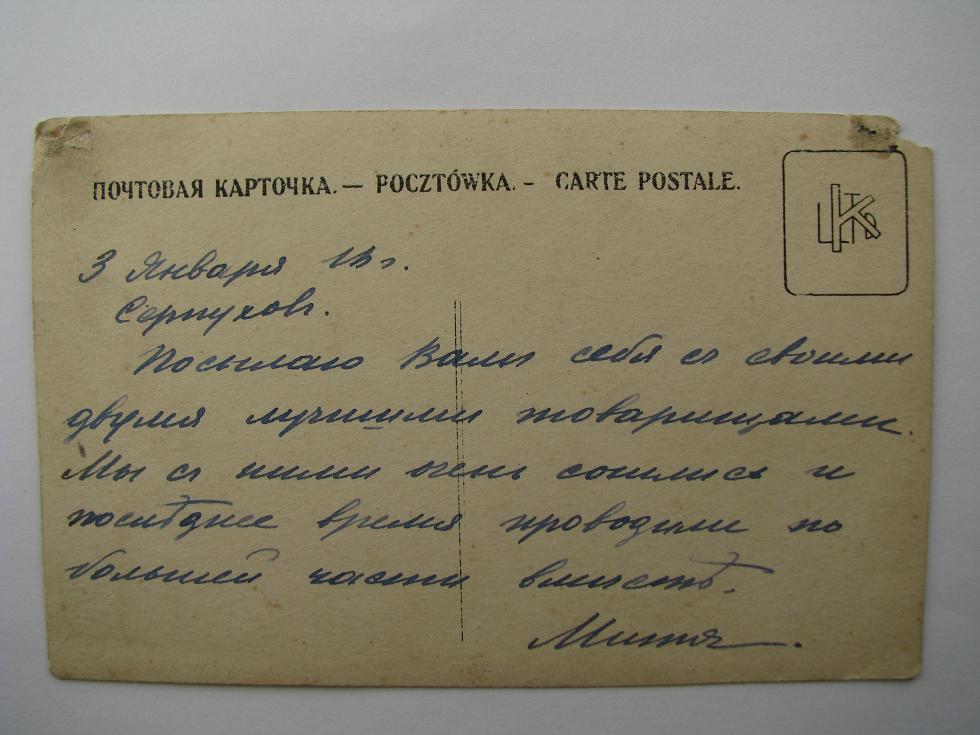 ПОЧТОВАЯ КАРТОЧКА. — POCZTÓWKA. - CARTE POSTALE.
3 Января 18 г.
Серпуховъ.
Посылаю Вамъ себя съ своими
двумя лучшими товарищами.
Мы съ ними очень сошлись и
послѣднее время проводили по
большей части вмѣстѣ.
Митя.